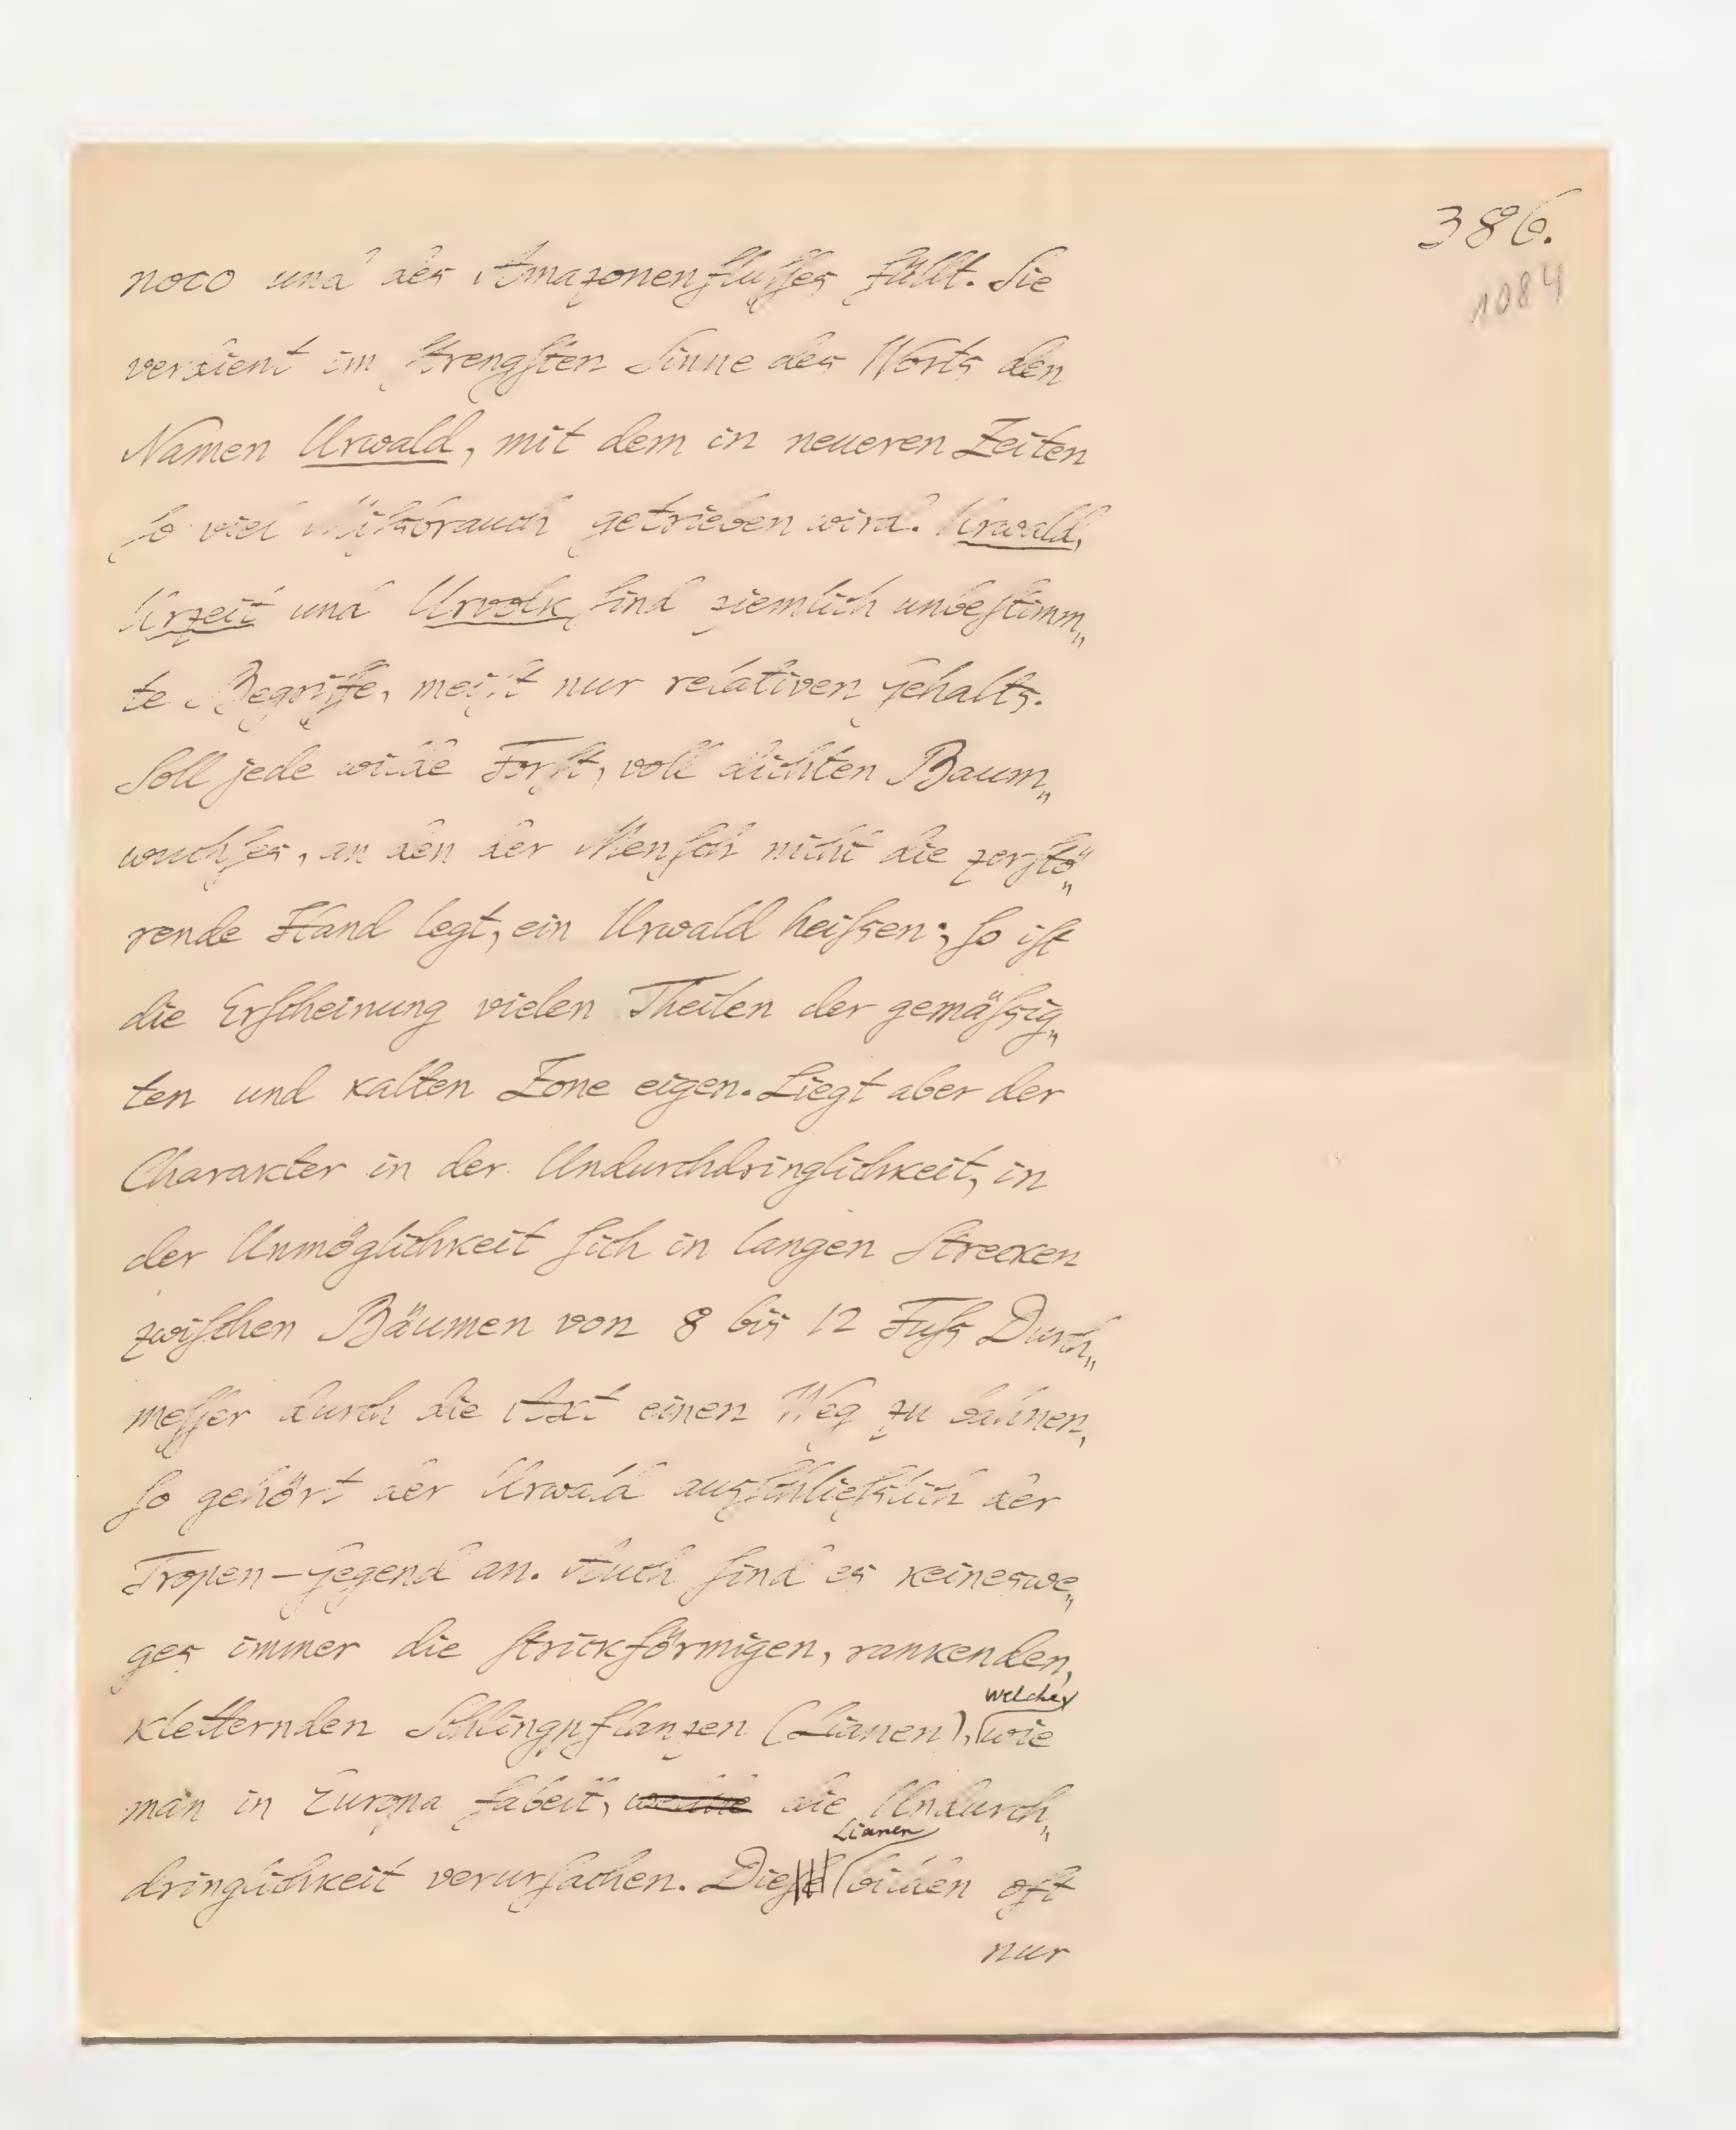 386.
1084
noco und des Amazonenflusses füllt. Sie
verdient im strengsten Sinne des Worts den
Namen Urwald, mit dem in neueren Zeiten
so viel Misbrauch getrieben wird. Urwald,
Urzeit und Urvolk sind ziemlich unbestimm„
te Begriffe, meist nur relativen Gehalts.
Soll jede wilde Forst, voll dichten Baum„
wuchses, an den der Mensch nicht die zerstö„
rende Hand legt, ein Urwald heißen; so ist
die Erscheinung vielen Theilen der gemäßig„
ten und kalten Zone eigen. Liegt aber der
Charakter in der Undurchdringlichkeit, in
der Unmöglichkeit sich in langen Strecken
zwischen Bäumen von 8 bis 12 Fuß Durch„
messer durch die Axt einen Weg zu bahnen,
so gehört der Urwald ausschließlich der
Tropen-Gegend an. Auch sind es keineswe„
ges immer die strickförmigen, rankenden,
kletternden Schlingpflanzen (Lianen), welche wie
man in Europa fabelt, welche die Undurch„
dringlichkeit verursachen. Diese Lianen bilden oft
nur